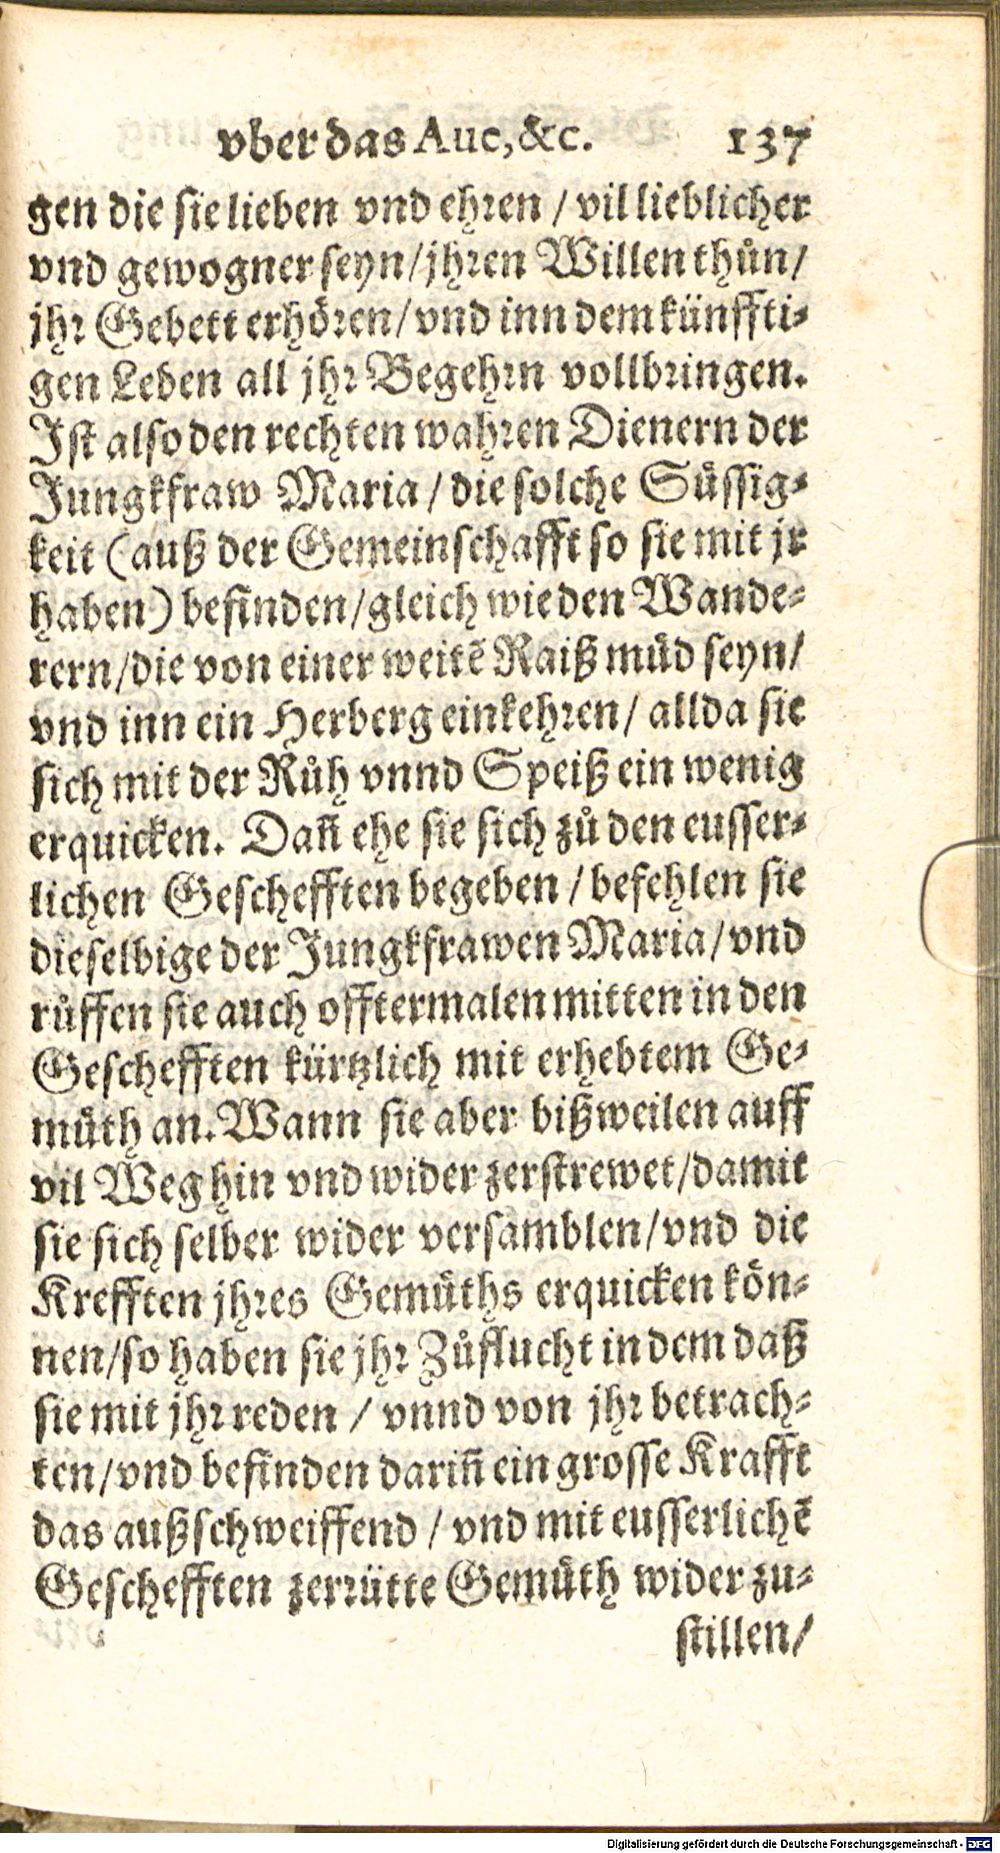 vber das Aue, &c. 137
gen die sie lieben vnd ehren / vil lieblicher
vnd gewogner seyn/jhren Willen thůn/
jhr Gebett erhören/vnd inn dem künffti-
gen Leden all jhr Begehrn vollbringen.
Ist also den rechten wahren Dienern der
Jungkfraw Maria / die solche Süssig-
keit (auß der Gemeinschafft so sie mit jr
haben) befinden/gleich wie den Wande-
rern/die von einer weitẽ Raiß müd seyn/
vnd inn ein Herberg einkehren/ allda sie
sich mit der Růh vnnd Speiß ein wenig
erquicken. Dañ ehe sie sich zů den eusser-
lichen Geschefften begeben / befehlen sie
dieselbige der Jungkfrawen Maria/vnd
růffen sie auch offtermalen mitten in den
Geschefften kürtzlich mit erhebtem Ge-
müth an. Wann sie aber bißweilen auff
vil Weg hin vnd wider zerstrewet/damit
sie sich selber wider versamblen/vnd die
Krefften jhres Gemüths erquicken kön-
nen/so haben sie jhr Zůflucht in dem daß
sie mit jhr reden / vnnd von jhr betrach-
ten/vnd befinden dariñ ein grosse Krafft
das außschweiffend / vnd mit eusserlichẽ
Geschefften zerrütte Gemüth wider zu-
stillen/
Digitalisierung gefördert durch die Deutsche Forschungsgemeinschaft - DFG